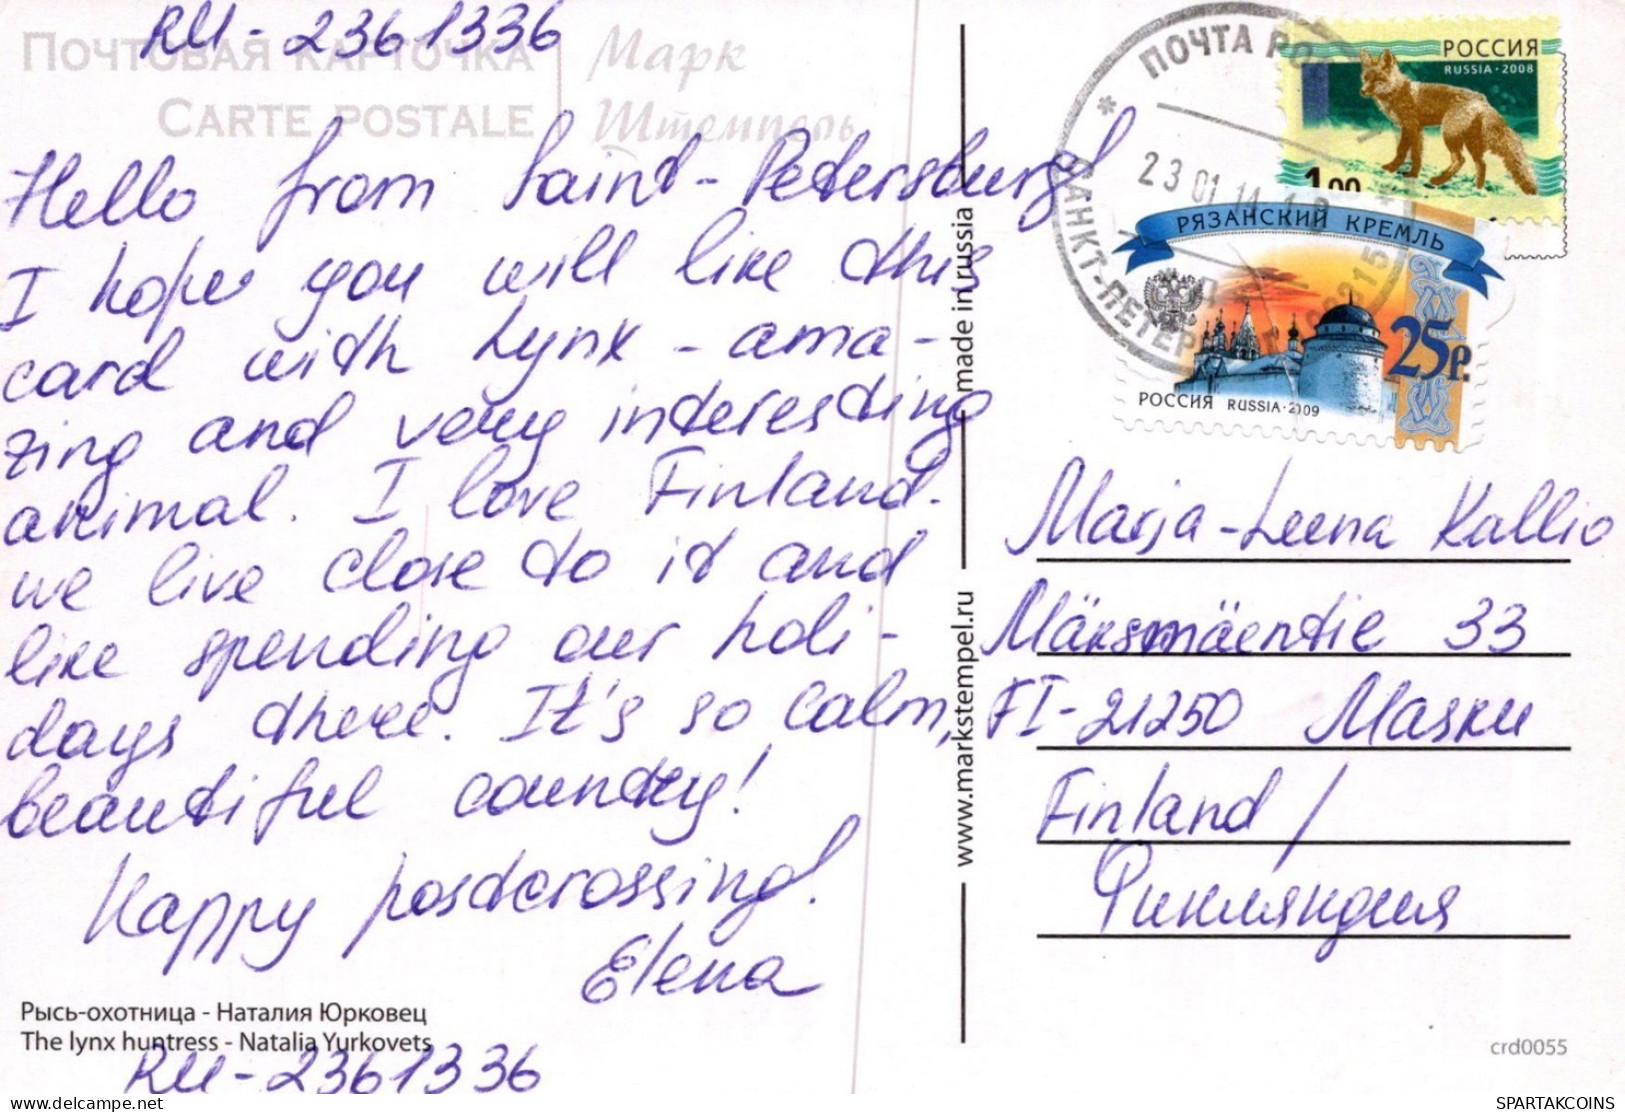 RU-2361336
ПОЧТОВАЯ КАРТОЧКА
CARTE POSTALE
Марк
Штемпель
Hello from Saint-Petersburg!
I hope you will like this
card with Lynx - ama-
zing and very interesting
animal. I love Finland.
we live close to it and
like spending our holi-
days there. It's so calm,
beautiful country!
Happy postcrossing!
Elena
Рысь-охотница - Наталия Юрковец
The lynx huntress - Natalia Yurkovets
RU-2361336
made in russia
www.markstempel.ru
ПОЧТА РО
САНКТ-ПЕТЕР
23 01 14
РОССИЯ
RUSSIA·2008
1.00
РЯЗАНСКИЙ КРЕМЛЬ
25р.
РОССИЯ RUSSIA·2009
Marja-Leena Kallio
Mäksmäentie 33
FI-21250 Masku
Finland /
Финляндия
crd0055
SPARTAKCOINS